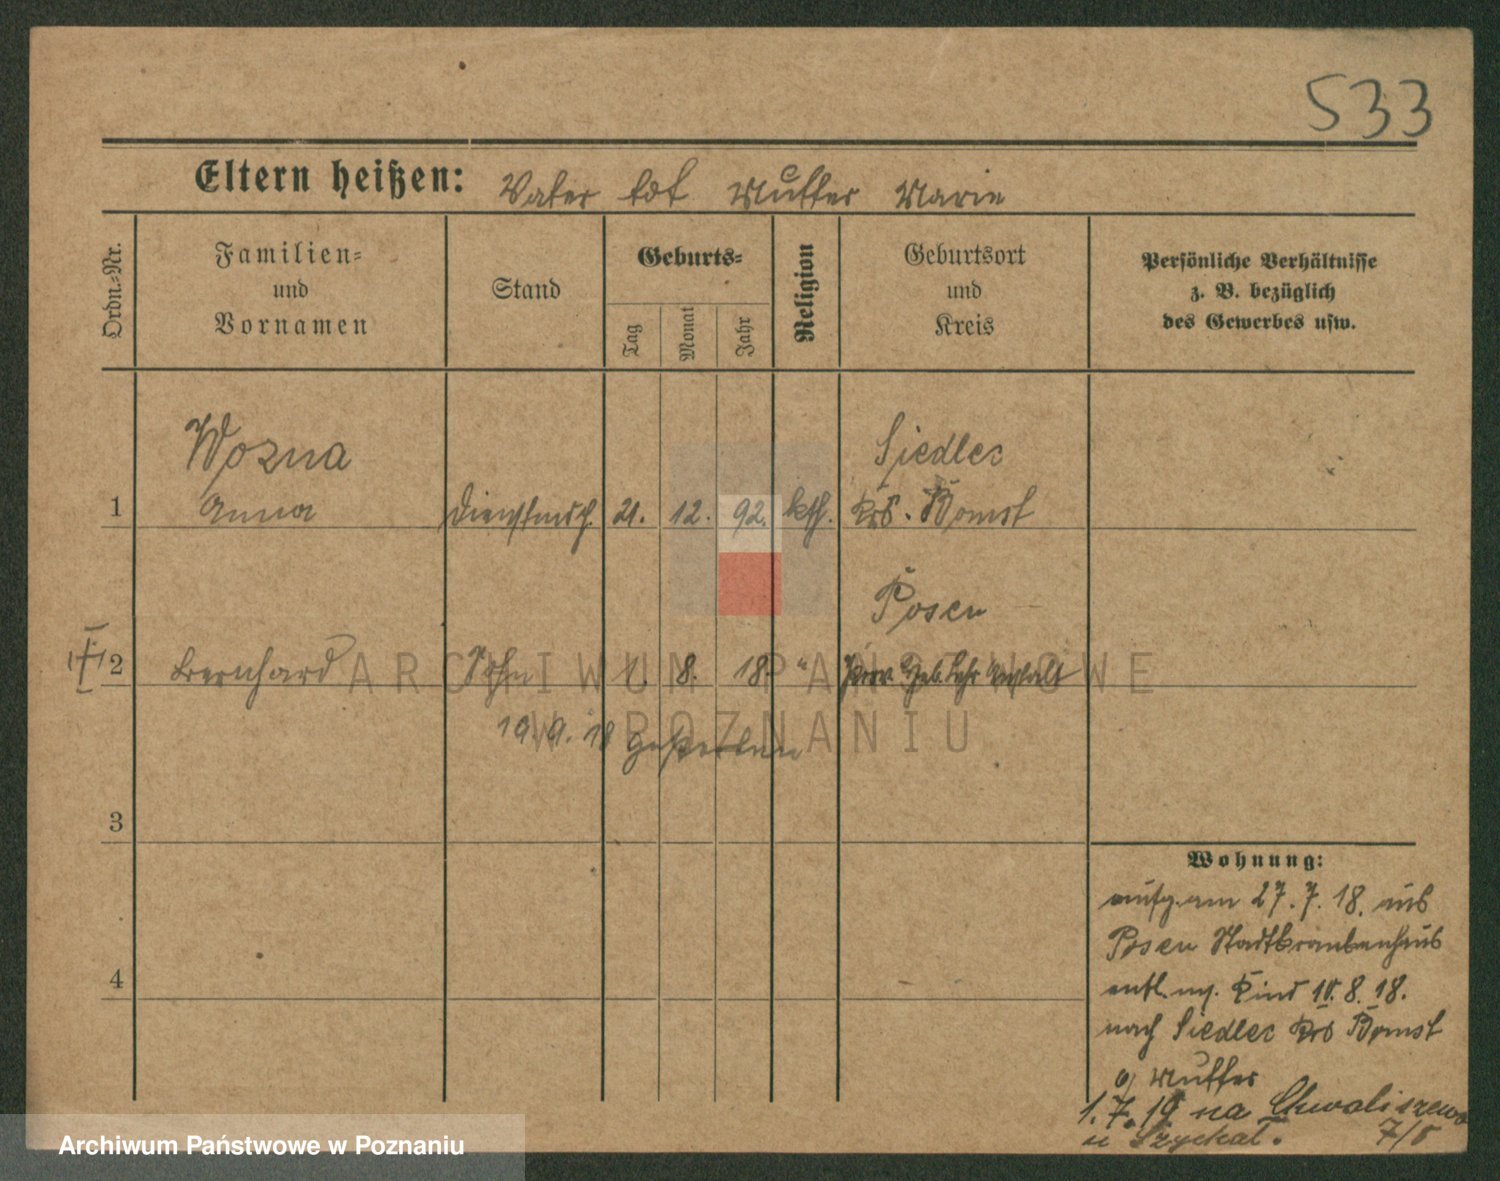 533
Eltern heißen: Vater tot Mutter Marie
Ordn.-Nr.
Familien-
und
Vornamen
Stand
Geburts-
Tag
Monat
Jahr
Religion
Geburtsort
und
Kreis
Persönliche Verhältnisse
z. B. bezüglich
des Gewerbes usw.
Wozna
Siedlec
1 Anna Dienstmdch. 21. 12. 92. kth. Krs. Bomst
Posen
2 Bernhard Sohn 1. 8. 18. " Prov. Geb. Lehr Anstalt
19. 9. 18 gestorben
3
4
Wohnung:
aufg. am 27. 7. 18. aus
Posen Stadtkrankenhaus
entl. m. Kind 10. 8. 18.
nach Siedlec Krs Bomst
Mutter
1. 7. 19 na Chwaliszewo
u Szychal. 7/8
ARCHIWUM PAŃSTWOWE
W POZNANIU
Archiwum Państwowe w Poznaniu